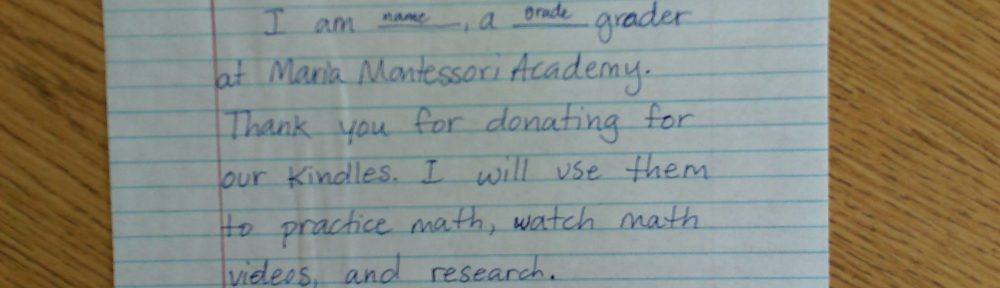 I am name, a grade grader
at Maria Montessori Academy.
Thank you for donating for
our Kindles. I will use them
to practice math, watch math
videos, and research.